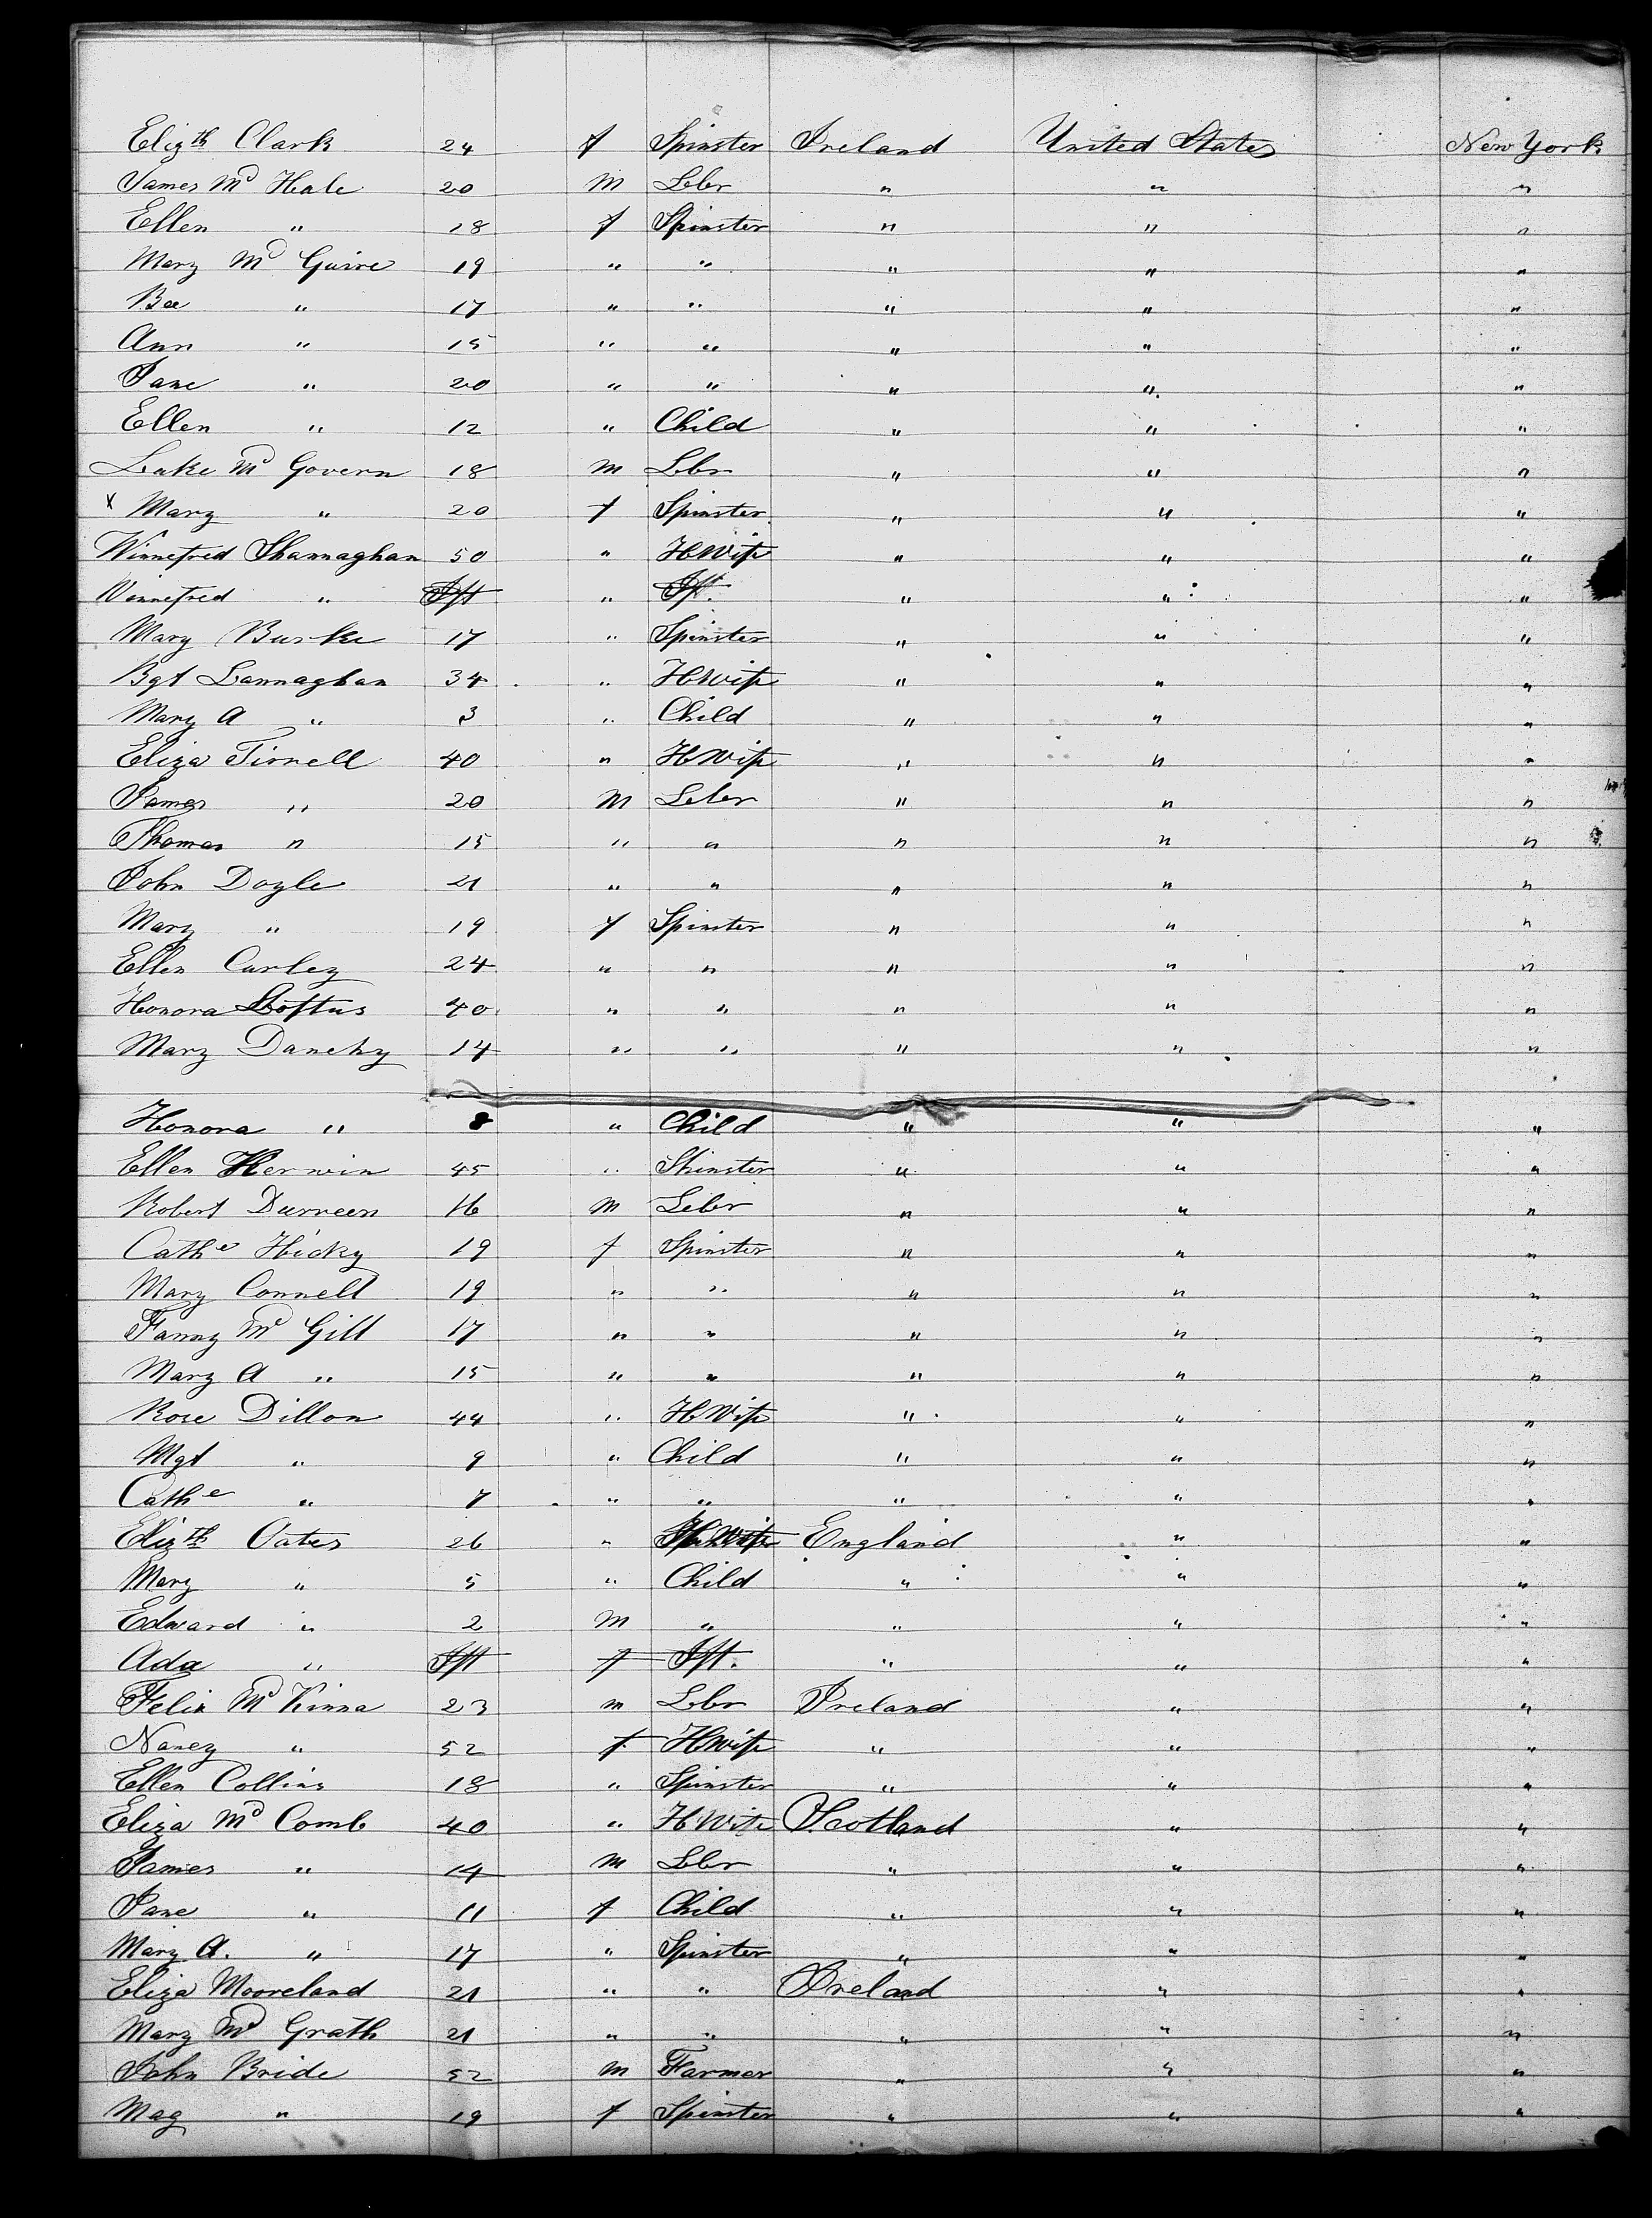 Elizth Clark 24 f Spinster Ireland United States New York
James Mc Hale 20 m Lbr " " "
Ellen " 18 f Spinster " " "
Mary Mc Guire 19 " " " " "
Bee " 17 " " " " "
Ann " 15 " " " " "
Jane " 20 " " " " "
Ellen " 12 " Child " " "
Luke Mc Govern 18 m Lbr " " "
x Mary " 20 f Spinster " " "
Winnefred Shannaghan 50 " HWife " " "
Winnefred " Ift " Ift. " " "
Mary Burke 17 " Spinster " " "
Bgt Lannaghan 34 " HWife " " "
Mary A " 3 " Child " " "
Eliza Tirnell 40 " HWife " " "
James " 20 m Lbr " " "
Thomas " 15 " " " " "
John Doyle 21 " " " " "
Mary " 19 f Spinster " " "
Ellen Curley 24 " " " " "
Honora Loftus 40 " " " " "
Mary Danehy 14 " " " " "
Honora " 8 " Child " " "
Ellen Kerwin 45 " Spinster " " "
Robert Durneen 16 m Lbr " " "
Cathe Hicky 19 f Spinster " " "
Mary Connell 19 " " " " "
Fanny Mc Gill 17 " " " " "
Mary A " 15 " " " " "
Rose Dillon 44 " HWife " " "
Mgt " 9 " Child " " "
Cathe " 7 " " " " "
Elizth Oates 26 " HWife England " "
Mary " 5 " Child " " "
Edward " 2 m " " " "
Ada " Ift f Ift. " " "
Felix Mc Kinna 23 m Lbr Ireland " "
Nancy " 52 f HWife " " "
Ellen Collins 18 " Spinster " " "
Eliza Mc Comb 40 " HWife Scotland " "
James " 14 m Lbr " " "
Jane " 11 f Child " " "
Mary A. " 17 " Spinster " " "
Eliza Mooreland 21 " " Ireland " "
Mary Mc Grath 21 " " " " "
John Bride 52 m Farmer " " "
Mag " 19 f Spinster " " "